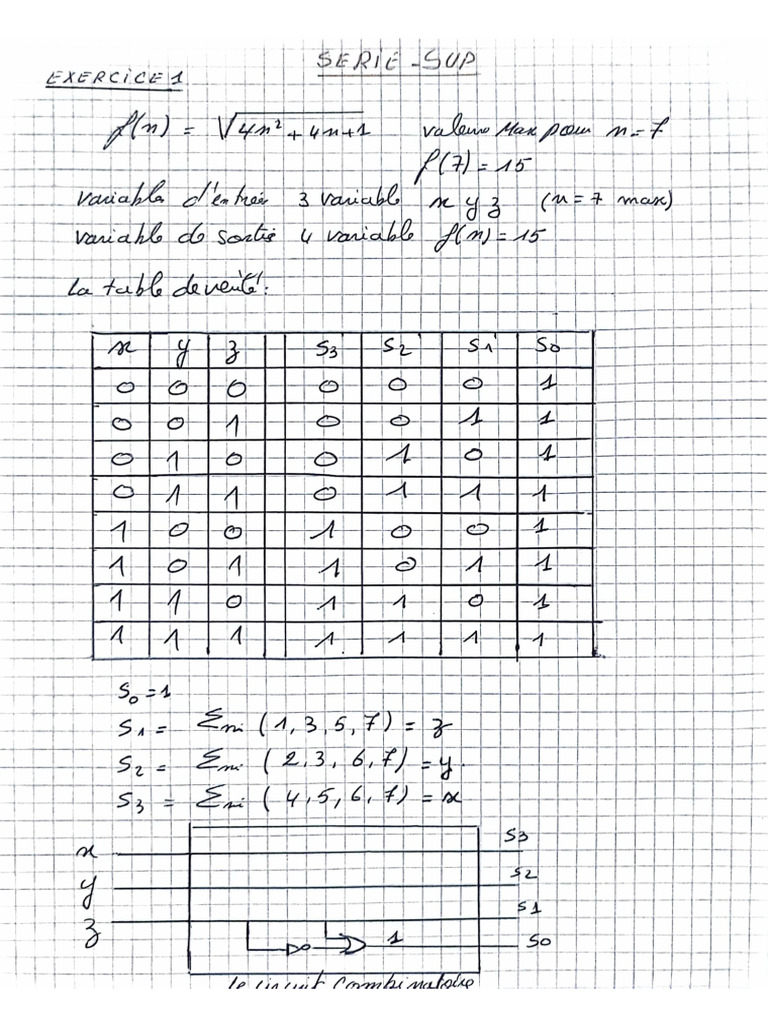 SERIE - SUP
EXERCICE 1
f(n) = √4n² + 4n+1 valeur Max pour n=7
f(7) = 15
variable d'entrée 3 variable x y z (n=7 max)
variable de sortie 4 variable f(n)=15
la table de vérité:
x y z S3 S2 S1 S0
0 0 0 0 0 0 1
0 0 1 0 0 1 1
0 1 0 0 1 0 1
0 1 1 0 1 1 1
1 0 0 1 0 0 1
1 0 1 1 0 1 1
1 1 0 1 1 0 1
1 1 1 1 1 1 1
S0 = 1
S1 = Σmi (1, 3, 5, 7) = z
S2 = Σmi (2, 3, 6, 7) = y.
S3 = Σmi (4, 5, 6, 7) = x
x S3
y S2
z S1
1 S0
le circuit combinatoire